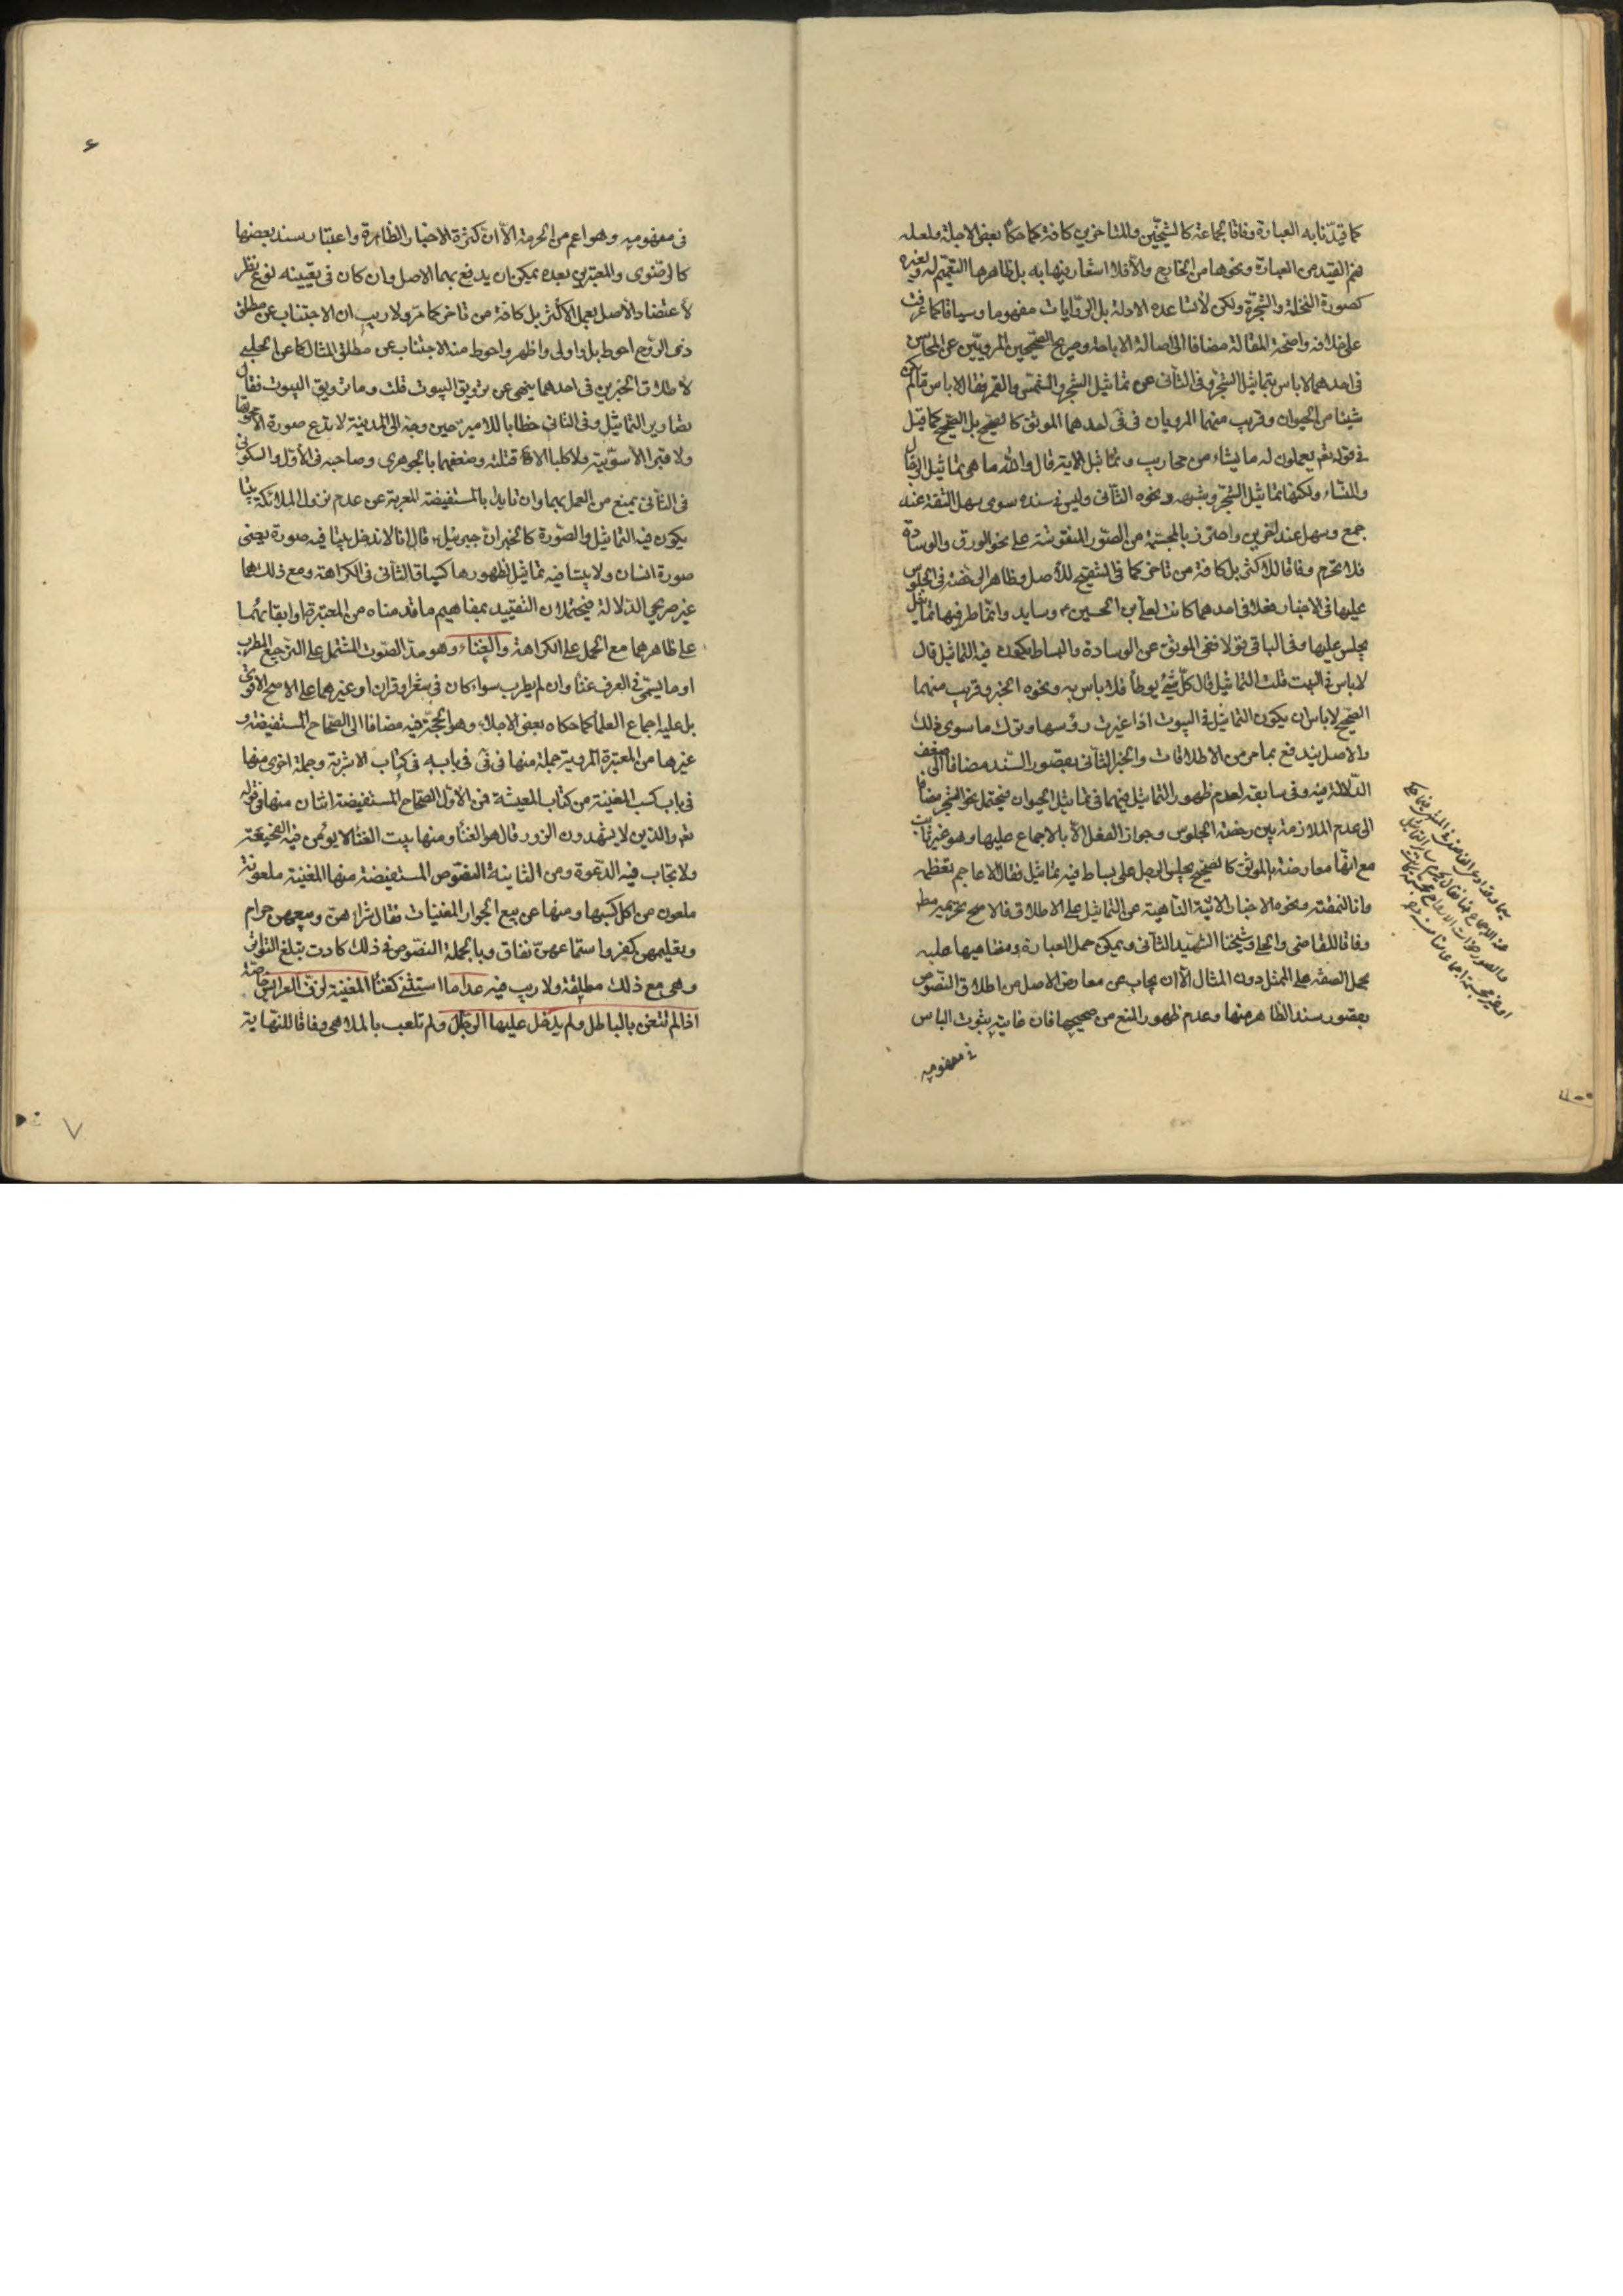 كما قيدنا به العبارة وفاقا لجماعة كالشيخين وللمتاخرين كافة كما حكاه بعض الاجلة ولعله
فهم القيد من العبارة ونحوها من الخارج والا فلا اشعار فيها به بل ظاهرها التعميم له ولغيره
كصورة النخلة والشجرة ولكن لا تساعده الادلة بل الروايات مفهوما وسياقا كما عرفت
على خلافه واضحة المقالة مضافا الى اصالة الاباحة وصريح الصحيحين المرويين عن المحاسن
فى احدهما لا باس بتماثيل الشجر وفى الثانى عن تماثيل الشجر والشمس والقمر فقال لا باس ما لم يكن
شيئا من الحيوان وقريب منهما المرويان فى فى احدهما الموثق كالصحيح بل الصحيح كما قيل
فى قوله تع يعملون له ما يشاء من محاريب وتماثيل الاية قال والله ما هى تماثيل الرجال
والنساء ولكنها تماثيل الشجر وشبهه ونحوه الثانى وليس فى سنده سوى سهل الثقة عند
جمع وسهل عند اخرين واحترز بالمجسمة من الصور المنقوشة على نحو الورق والوسادة
فلا تحرم وفاقا للاكثر بل كافة من تاخر كما فى التنقيح للاصل وظاهر الرخصة فى الجلوس
عليها فى الاخبار ففى احدهما كانت لعلى بن الحسين ع وسايد وانماط فيها تماثيل
يجلس عليها وفى الباقى فى الموثق عن الوسادة والبساط يكون فيه التماثيل قال
لا باس فى البيت قلت التماثيل قال كل شئ يوطأ فلا باس به ونحوه الخبر وقريب منهما
الصحيح لا باس ان يكون التماثيل فى البيوت اذا غيرت رؤسها وترك ما سوى ذلك
والاصل يندفع بما مر من الاطلاقات والخبر الثانى بقصور السند مضافا الى ضعف
الدلالة فيه وفى سابقه لعدم ظهور التماثيل فيهما فى تماثيل الحيوان فيحتمل نحو الشجر مضافا
الى عدم الملازمة بين رخصة الجلوس وجواز الفعل الا بالاجماع عليها وهو غير ثابت
مع انها معارضة بالموثق كالصحيح يجلس الرجل على بساط فيه تماثيل فقال الاعاجم تعظمه
وانا لنمقته ونحوه الاخبار الاتية الناهية عن التماثيل على الاطلاق فالاصح تحريمه مط
وفاقا للقاضى والحلى وشيخنا الشهيد الثانى ويمكن حمل العبارة ومضاهيها عليه
بجعل الصفة على الممثل دون المثال الا ان يجاب عن معارض الاصل من اطلاق النصوص
بقصور سند الظاهر منها وعدم ظهور المنع من صحيحها فان غايته ثبوت الباس
فى مفهومه
فى مفهومه وهو اعم من الحرمة الا ان كثرة الاخبار الظاهرة واعتبار سند بعضها
كالرضوى والمعتبرين بعده يمكن ان يدفع بهما الاصل وان كان فى تعيينه نوع نظر
لاعتضاد الاصل بعمل الاكثر بل كافة من تاخر كما مر ولا ريب ان الاجتناب عن مطلق
ذى الروح احوط بل واولى واظهر واحوط منه الاجتناب عن مطلق المثال كما عن الحلبى
لاطلاق الخبرين فى احدهما ينهى عن تزويق البيوت قلت وما تزويق البيوت فقال
تصاوير التماثيل وفى الثانى خطابا للامير ع حين وجهه الى المدينة لا تدع صورة الا محوتها
ولا قبرا الا سويته ولا كلبا الا قتلته وضعفهما بالجوهرى وصاحبه فى الاول والسكونى
فى الثانى يمنع من العمل بهما وان تايدا بالمستفيضة المعربة عن عدم نزول الملائكة بيتا
يكون فيه التماثيل والصورة كالخبر ان جبرئيل ع قال انا لا ندخل بيتا فيه صورة يعنى
صورة انسان ولا بيتا فيه تماثيل لظهورها كسياق الثانى فى الكراهة ومع ذلك هما
غير صريحى الدلالة فيحتملان التقييد بمفاهيم ما قدمناه من المعتبرة او ابقائهما
على ظاهرهما مع الحمل على الكراهة والغناء وهو مد الصوت المشتمل على الترجيع المطرب
او ما يسمى فى العرف غناء وان لم يطرب سواء كان فى شعر او قران او غيرهما على الاصح الاقوى
بل عليه اجماع العلماء كما حكاه بعض الاجلاء وهو الحجة فيه مضافا الى الصحاح المستفيضة و
غيرها من المعتبرة المروية جملة منها فى فى فى بابه فى كتاب الاشربة وجملة اخرى منها
فى باب كسب المغنية من كتاب المعيشة فمن الاول الصحاح المستفيضة اثنان منها فى قوله
تع والذين لا يشهدون الزور قال هو الغناء ومنها بيت الغناء لا يؤمن فيه الفجيعة
ولا تجاب فيه الدعوة ومن الثانية النصوص المستفيضة منها المغنية ملعونة
ملعون من اكل كسبها ومنها عن بيع الجوار المغنيات فقال شراهن وبيعهن حرام
وتعليمهن كفر واستماعهن نفاق وبالجملة النصوص فى ذلك كادت تبلغ التواتر
وهى مع ذلك مطلقة ولا ريب فيه عدا ما استثنى كغناء المغنية لزف العرايس خاصة
اذا لم تتغن بالباطل ولم يدخل عليها الرجال ولم تلعب بالملاهى وفاقا للنهاية
٧